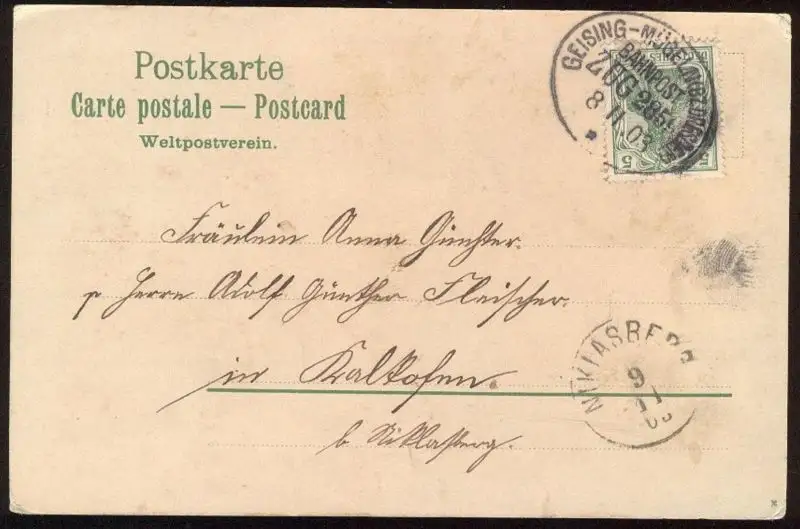 Postkarte
Carte postale — Postcard
Weltpostverein.
GEISING-MÜGELN
BAHNPOST
ZUG 2851
8 11 03
5 5
Fräulein Anna Günther.
p Herrn Adolf Günther Fleischer.
in Kalkofen.
b Niklasberg.
NIKLASBERG
9
03